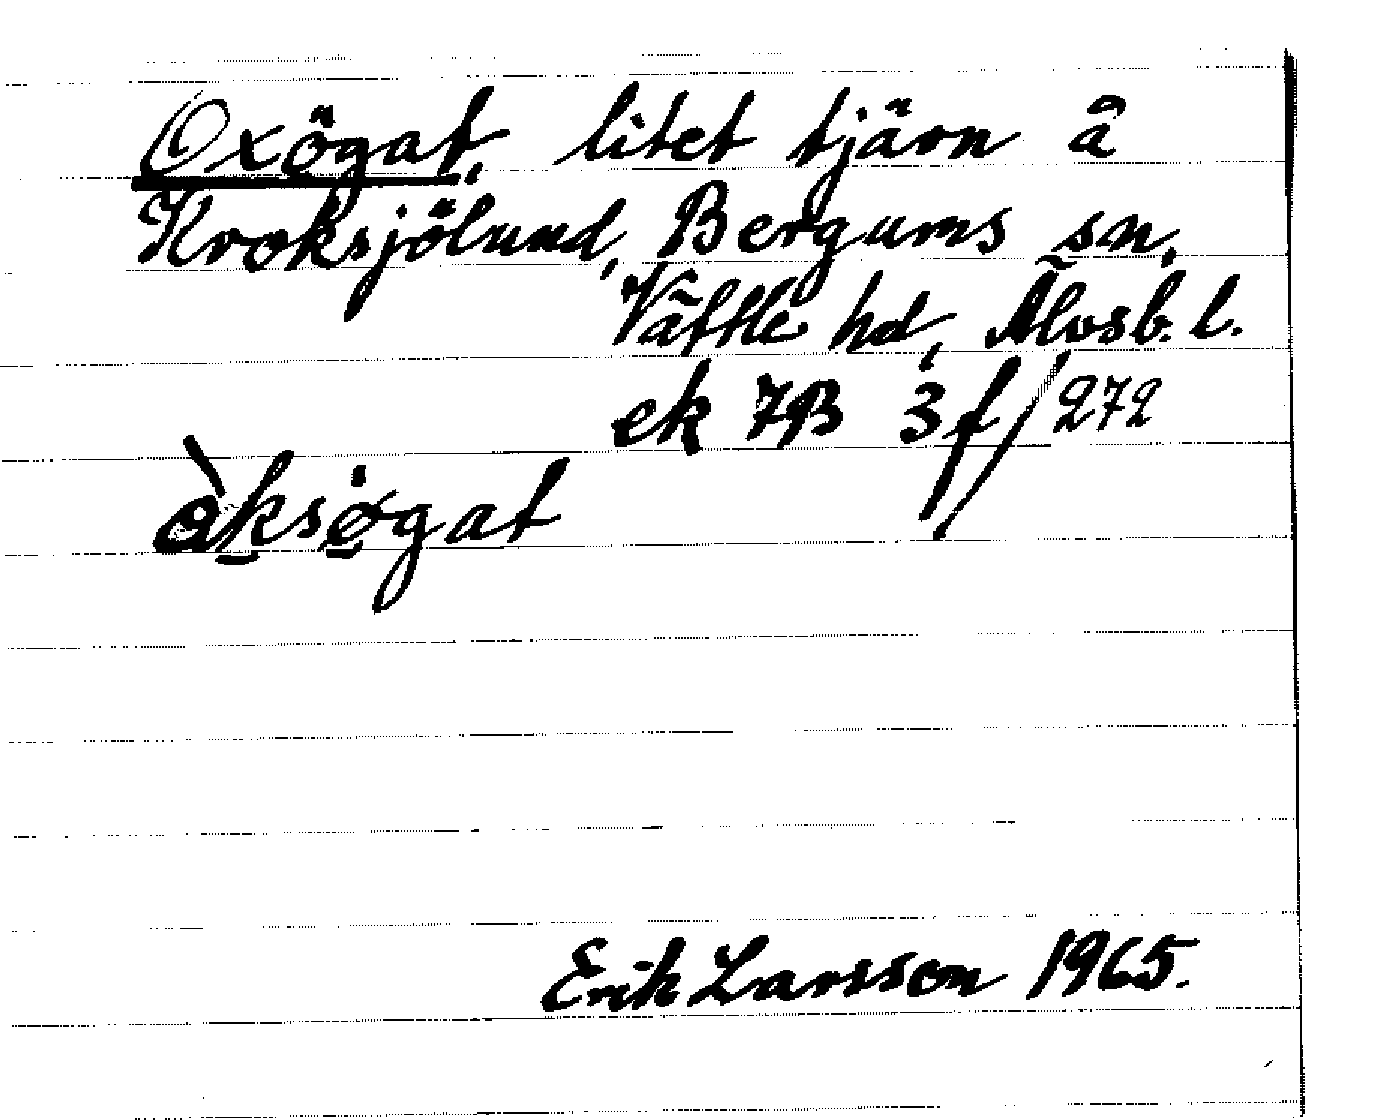 Oxögat, litet tjärn å
Kroksjölund, Bergums sn,
Vättle hd, Älvsb. l.
ek 7B 3f/272
òksøgat
Erik Larsson 1965.